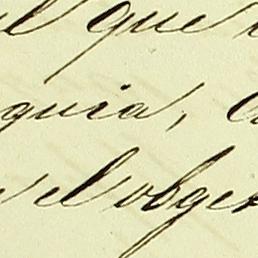 el que
quia,
el obge